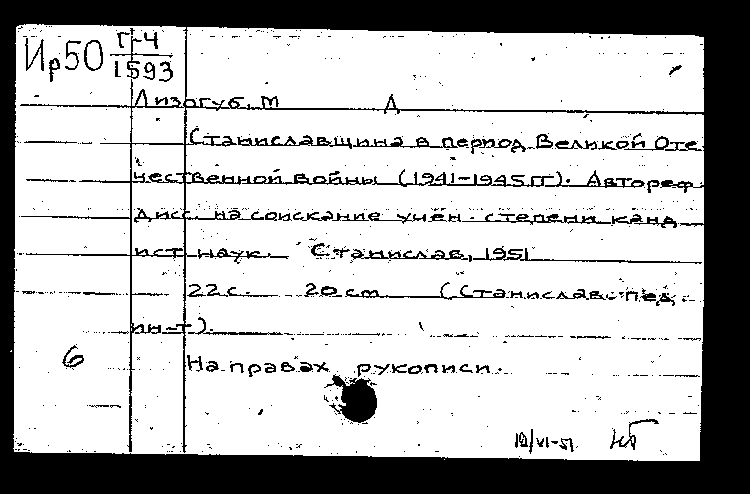 Ир50 Г-4
1593
Лизогуб, М Д
Станиславщина в период Великой Оте
чественной войны (1941-1945 гг). Автореф.
дисс. на соискание учён. степени канд
ист наук. Станислав, 1951
22 с. 20 см (Станислав. пед.
ин-т).
6 На правах рукописи.
12/VI-51